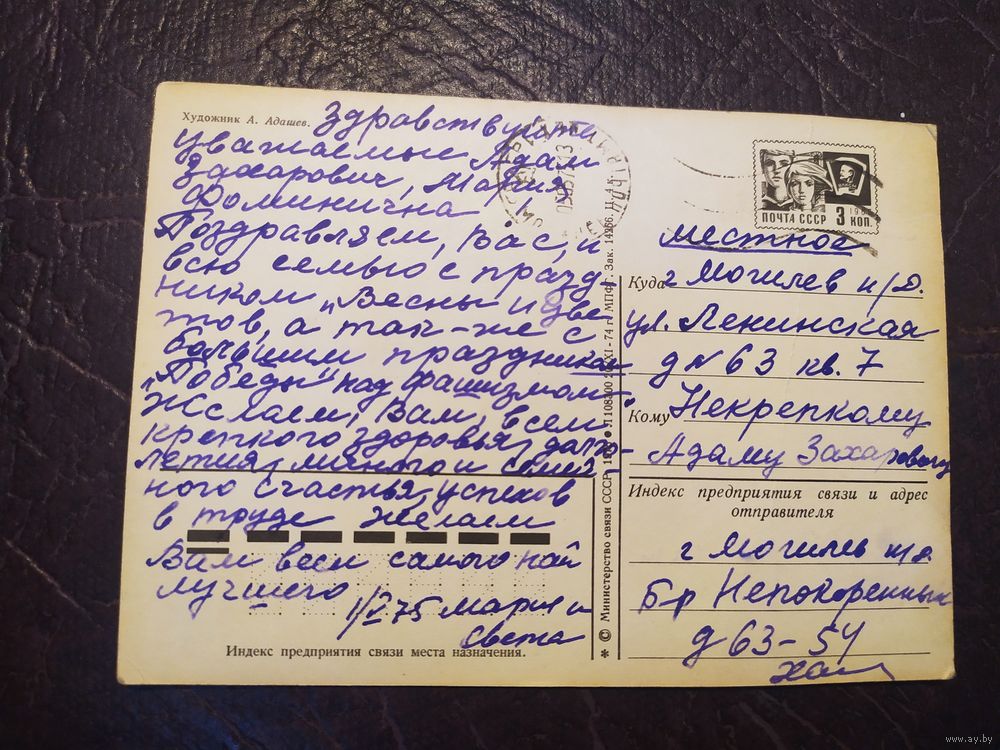 Художник А. Адашев.
Здравствуйте
уважаемые Адам
Захарович, Мария
Фоминична!
Поздравляем, Вас, и
всю семью с празд-
ником „Весны и Цве
тов, а так-же с
большим праздником
„Победы" над фашизмом.
Желаем, Вам, всем
крепкого здоровья, долго-
летия, личного и семей-
ного счастья, успехов
в труде Желаем
Вам всем самого най
лучшего
1/V 75 Мария и
Света
Индекс предприятия связи места назначения.
* © Министерство связи СССР
МПФГ. Зак.
ПОЧТА СССР 3 КОП.
местное
Куда г Могилев н/Д.
ул. Ленинская
д № 63 кв. 7
Кому Некрепкому
Адаму Захаровичу
Индекс предприятия связи и адрес
отправителя
г Могилев
Б-р Непокоренных
д 63-54
www.ay.by